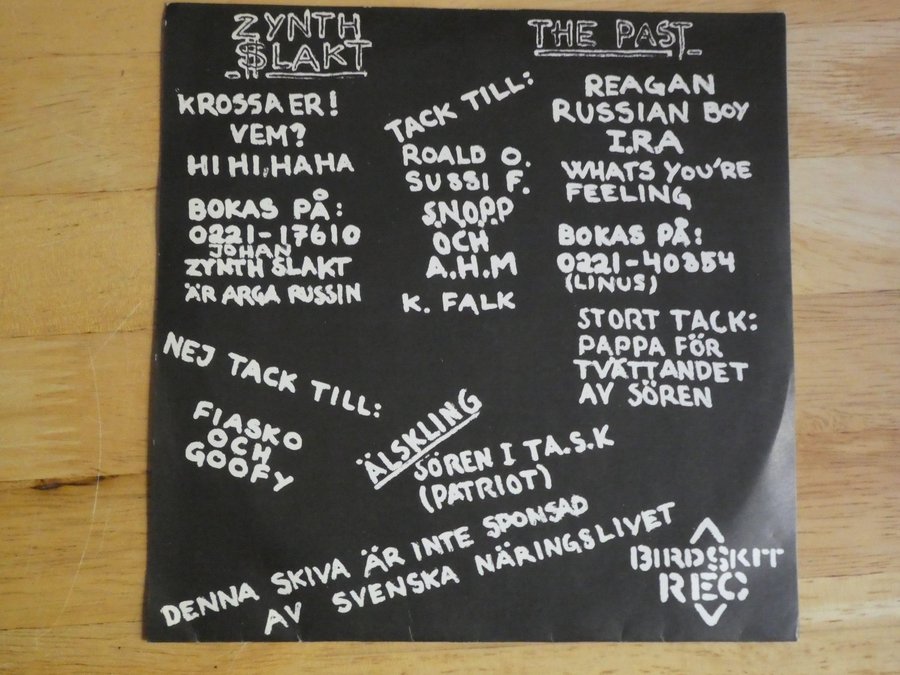 ZYNTH
$LAKT
KROSSA ER!
VEM?
HI HI, HA HA
BOKAS PÅ:
0221-17610
JOHAN
ZYNTH SLAKT
ÄR ARGA RUSSIN
TACK TILL:
ROALD O.
SUSSI F.
S.N.O.P.P
OCH
A.H.M
K. FALK
THE PAST
REAGAN
RUSSIAN BOY
I.R.A
WHATS YOU'RE
FEELING
BOKAS PÅ:
0221-40354
(LINUS)
STORT TACK:
PAPPA FÖR
TVÄTTANDET
AV SÖREN
NEJ TACK TILL:
FIASKO
OCH
GOOFY
ÄLSKLING
SÖREN I T.A.S.K
(PATRIOT)
DENNA SKIVA ÄR INTE SPONSAD
AV SVENSKA NÄRINGSLIVET
BIRDSKIT
REC